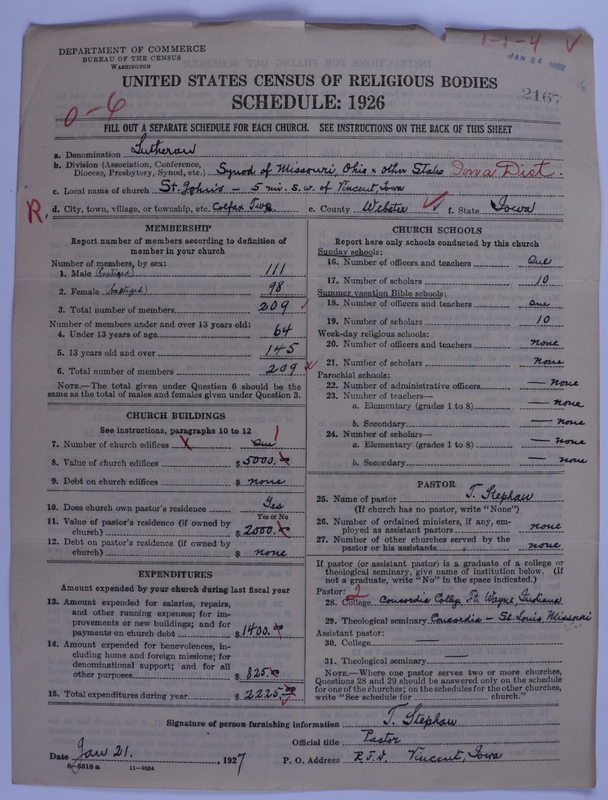 DEPARTMENT OF COMMERCE
BUREAU OF THE CENSUS
WASHINGTON
1-1-4 V
JAN 24
2167
UNITED STATES CENSUS OF RELIGIOUS BODIES
SCHEDULE: 1926
0-6
FILL OUT A SEPARATE SCHEDULE FOR EACH CHURCH. SEE INSTRUCTIONS ON THE BACK OF THIS SHEET
a. Denomination Lutheran
b. Division (Association, Conference, Diocese, Presbytery, Synod, etc.) Synod of Missouri, Ohio & other States Iowa Dist.
c. Local name of church St. Johns - 5 mi. s.w. of Vincent, Iowa
R. d. City, town, village, or township, etc. Colfax Twp. e. County Webster f. State Iowa
MEMBERSHIP
Report number of members according to definition of
member in your church
Number of members, by sex:
1. Male (baptized) 111
2. Female (baptized) 98
3. Total number of members 209
Number of members under and over 13 years old:
4. Under 13 years of age 64
5. 13 years old and over 145
6. Total number of members 209
NOTE.—The total given under Question 6 should be
same as the total of males and females given under Question 3.
CHURCH BUILDINGS
See instructions, paragraphs 10 to 12
7. Number of church edifices One 1
8. Value of church edifices $ 5000.00
9. Debt on church edifices $ none
10. Does church own pastor's residence Yes
Yes or No
11. Value of pastor's residence (if owned by
church) $ 2000.00
12. Debt on pastor's residence (if owned by
church) $ none
EXPENDITURES
Amount expended by your church during last fiscal year
13. Amount expended for salaries, repairs,
and other running expenses; for im-
provements or new buildings; and for
payments on church debt $ 1400.00
14. Amount expended for benevolences, in-
cluding home and foreign missions; for
denominational support; and for all
other purposes $ 825.00
15. Total expenditures during year $ 2225.00
CHURCH SCHOOLS
Report here only schools conducted by this church
Sunday schools:
16. Number of officers and teachers One
17. Number of scholars 10
Summer vacation Bible schools:
18. Number of officers and teachers one
19. Number of scholars 10
Week-day religious schools:
20. Number of officers and teachers none
21. Number of scholars none
Parochial schools:
22. Number of administrative officers — none
23. Number of teachers—
a. Elementary (grades 1 to 8) — none
b. Secondary — none
24. Number of scholars—
a. Elementary (grades 1 to 8) — none
b. Secondary — none
PASTOR
25. Name of pastor T. Stephan
(If church has no pastor, write "None")
26. Number of ordained ministers, if any, em-
ployed as assistant pastors none
27. Number of other churches served by the
pastor or his assistants none
If pastor (or assistant pastor) is a graduate of a college or
theological seminary, give name of institution below. (If
not a graduate, write "No" in the space indicated.)
Pastor: 2
28. College Concordia College, Ft. Wayne, Indiana
29. Theological seminary Concordia - St. Louis, Missouri
Assistant pastor:
30. College —
31. Theological seminary —
NOTE.—Where one pastor serves two or more churches,
Questions 28 and 29 should be answered only on the schedule
for one of the churches; on the schedules for the other churches,
write "See schedule for church."
Signature of person furnishing information T. Stephan
Official title Pastor
Date Jan 21., 1927 P. O. Address R.F.D. Vincent, Iowa
11—9054